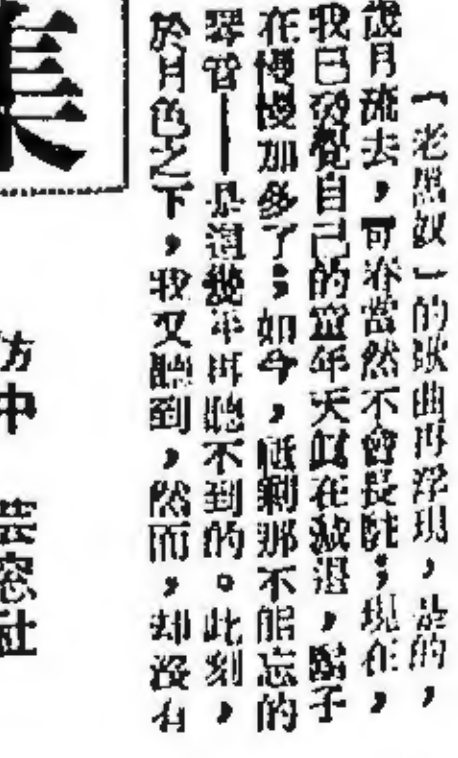 「老黑奴」的歌曲再浮現,是的,
歲月流去,可春當然不會長駐;現在,
我已發覺自己的童年天真在減退,鬍子
在慢慢加多了;如今,祗剩那不能忘的
琴管——是這幾年再聽不到的。此刻,
於月色之下,我又聽到,然而,却沒有
集
仿中 芸窓社